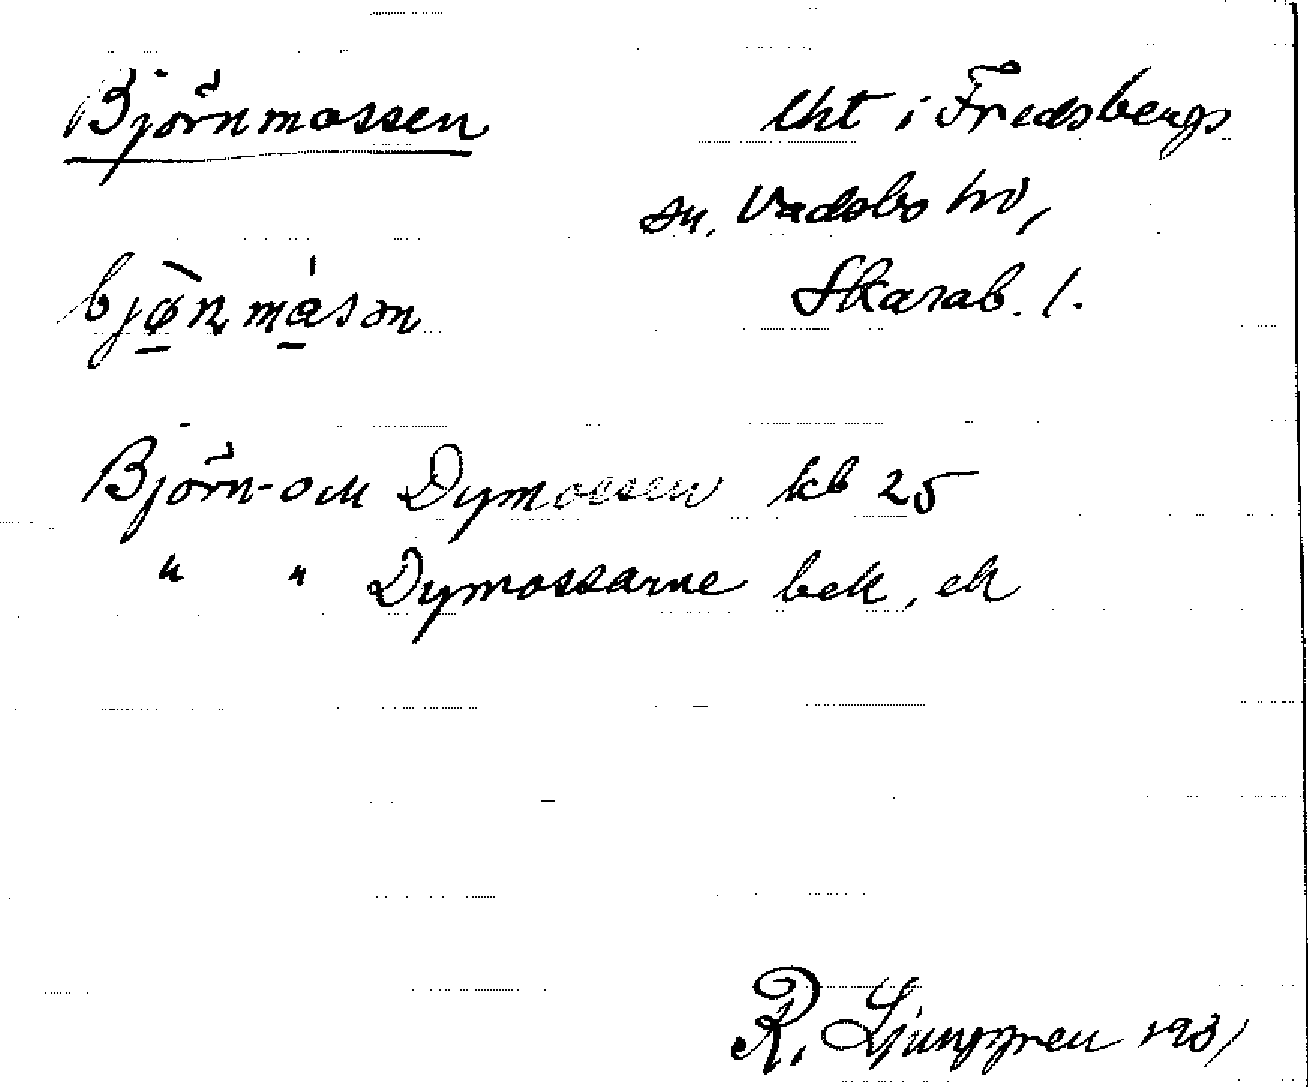 Björnmossen
lht i Fredsbergs
sn. Vadsbo hd,
Skarab. l.
bjø̱̀n má̱sən
Björn- och Dymossen kb 25
" " Dymossarne bek, ek
R. Ljunggren 1931